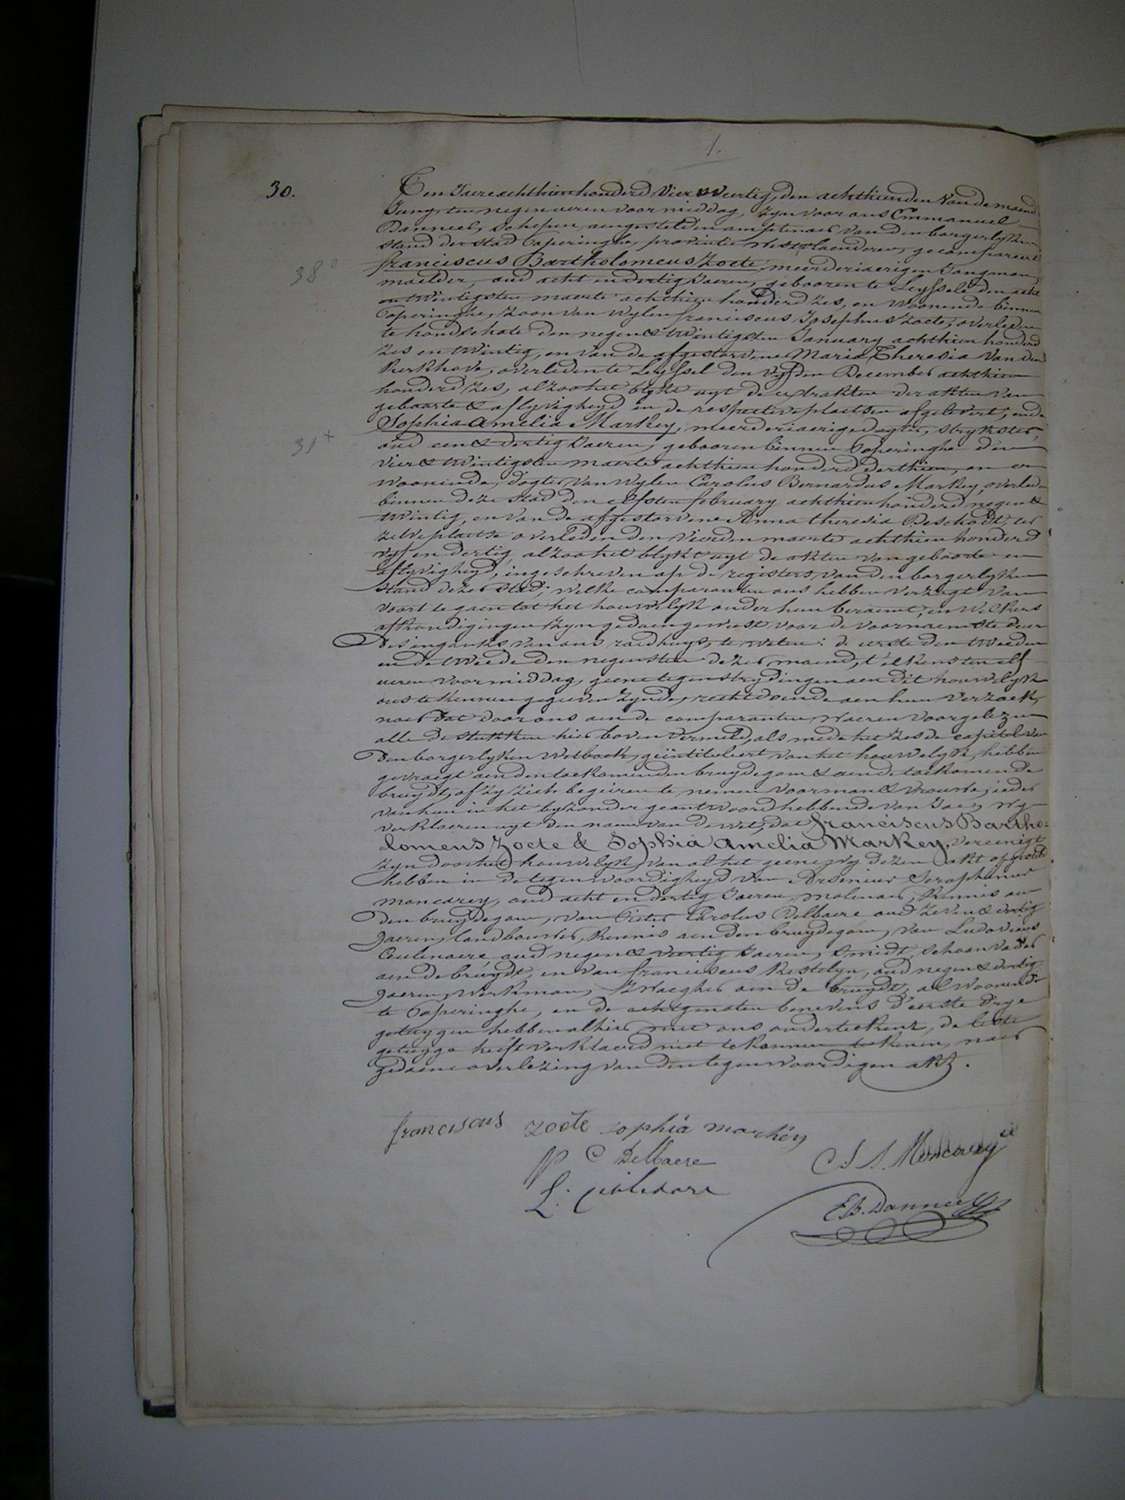 1.
30.
Ten Jaere achthienhonderd vier en veertig, den achthienden van de maend
Juny, ten negen ueren voormiddag, zyn voor ons Emmanuel
Danneel, schepen, aengestelden amptenaer van den borgerlyken
stand der stad Poperinghe, provintie Westvlaenderen, gecompareert
franciscus Bartholomeus Zoete, meerderjaerigen Jongman,
38
maelder, oud acht en dertig Jaeren, geboren te Leyssele den acht
en twintigsten maerte achthien honderd zes, en wonende binnen
Poperinghe, zoon van wylen franciscus Josephus Zoete, overleden
te hondschote den negen & twintigsten January achthien honderd
zes en twintig, en van de afgestorvene Maria Theresia Vanden
Kerkhove, overleden te Leyssel den vyfden December achthien
honderd zes, alzoo het blykt uyt de extrakten der akten van
geboorte & aflyvigheyd in de respective plaetsen afgelevert, ende
Sophia Amelia Markey, meerderjaerige dogter, strykster,
31
oud een & dertig Jaeren, geboren binnen Poperinghe den
vier & twintigsten maerte achthien honderd derthien, en er
woonende, dogter van wylen Carolus Bernardus Markey, overleden
binnen deze stad den elfsten february achthien honderd negen &
twintig, en van de afgestorvene Anna theresia Deschodt, ter
zelve plaetse overleden den vierden maerte achthien honderd
vyf en dertig alzoo het blykt uyt de akten van geboorte en
aflyvigheyd, ingeschreven op de registers van den borgerlyken
stand dezer stad; welke comparanten ons hebben verzogt van
voort te gaen tot het houwelyk onder hun beraemt, en welkers
afkondigingen zyn gedaen geweest voor de voornaemste deur
des ingankes van ons raedhuys, te weten: d'eerste den tweeden
en de tweede den negensten dezer maend, t'elkens ten elf
ueren voormiddag, geene tegenstrydingen aen dit houwelyk
ons te kennen gegeven zynde, recht doende aen hun verzoek,
naer dat door ons aen de comparanten waeren voorgelezen
alle de stukken hier boven vermeld, als mede het zesde capitel van
den borgerlyken Wetboek, geintituleert van het houwelyk, hebben
gevraegt aen den toekomenden bruydegom & aen de toekomende
bruydt, of zy zich begeiren te nemen voor man & vrouwe; ieder
van hun in het byzonder geantwoord hebbende van Jae, wy
verklaeren uyt den naem van de wet, dat franciscus Bartho-
lomeus Zoete & Sophia Amelia Markey, vereenigt
zyn door het houwelyk, van al het geene wy dezen akt opgesteld
hebben in de tegenwoordigheyd van Arsenius Seraphinus
moncarey, oud acht en dertig Jaeren, molenaer, kennis aen
den bruydegom, van Pieter Carolus Delbaere oud zeven & dertig
Jaeren, landbouwer, kennis aen den bruydegom, van Ludovicus
Ceulenaere oud negen & veertig Jaeren, smidt, schoonvader
aen de bruydt, en van franciscus Kestelyn, oud negen & dertig
Jaeren, werkman, zwaeger aen de bruydt, al woonende
te Poperinghe, en de echtgenoten benevens d'eerste drye
getuygen hebben alhier met ons onderteekent, de leste
getuyge heeft verklaerd niet te konnen teekenen, naer
gedaene overlezing van den tegenwoordigen akt.
franciscus zoete sophia markey
P C Delbaere
L. Ceulenare
E.B. Danneel